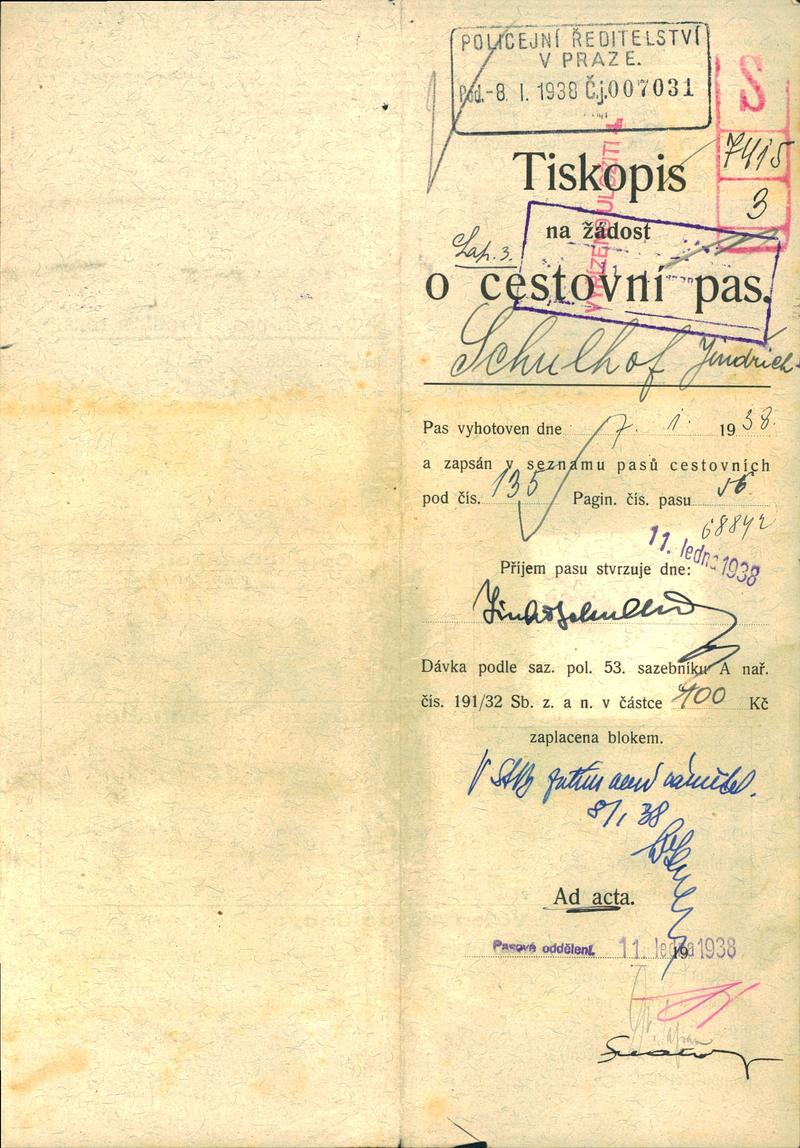 POLICEJNÍ ŘEDITELSTVÍ
V PRAZE.
Pod.-8. I. 1938 Č.j.007031
S
7415
3
Tiskopis
na žádost
o cestovní pas.
Schulhof Jindřich
Pas vyhotoven dne 7. 1. 1938.
a zapsán v seznamu pasů cestovních
pod čís. 135 Pagin. čís. pasu
68842
11. ledna 1938
Příjem pasu stvrzuje dne:
Dávka podle saz. pol. 53. sazebníku A nař.
čís. 191/32 Sb. z. a n. v částce 100 Kč
zaplacena blokem.
8/1 38
Ad acta.
Pasové oddělení. 11. ledna 19 1938